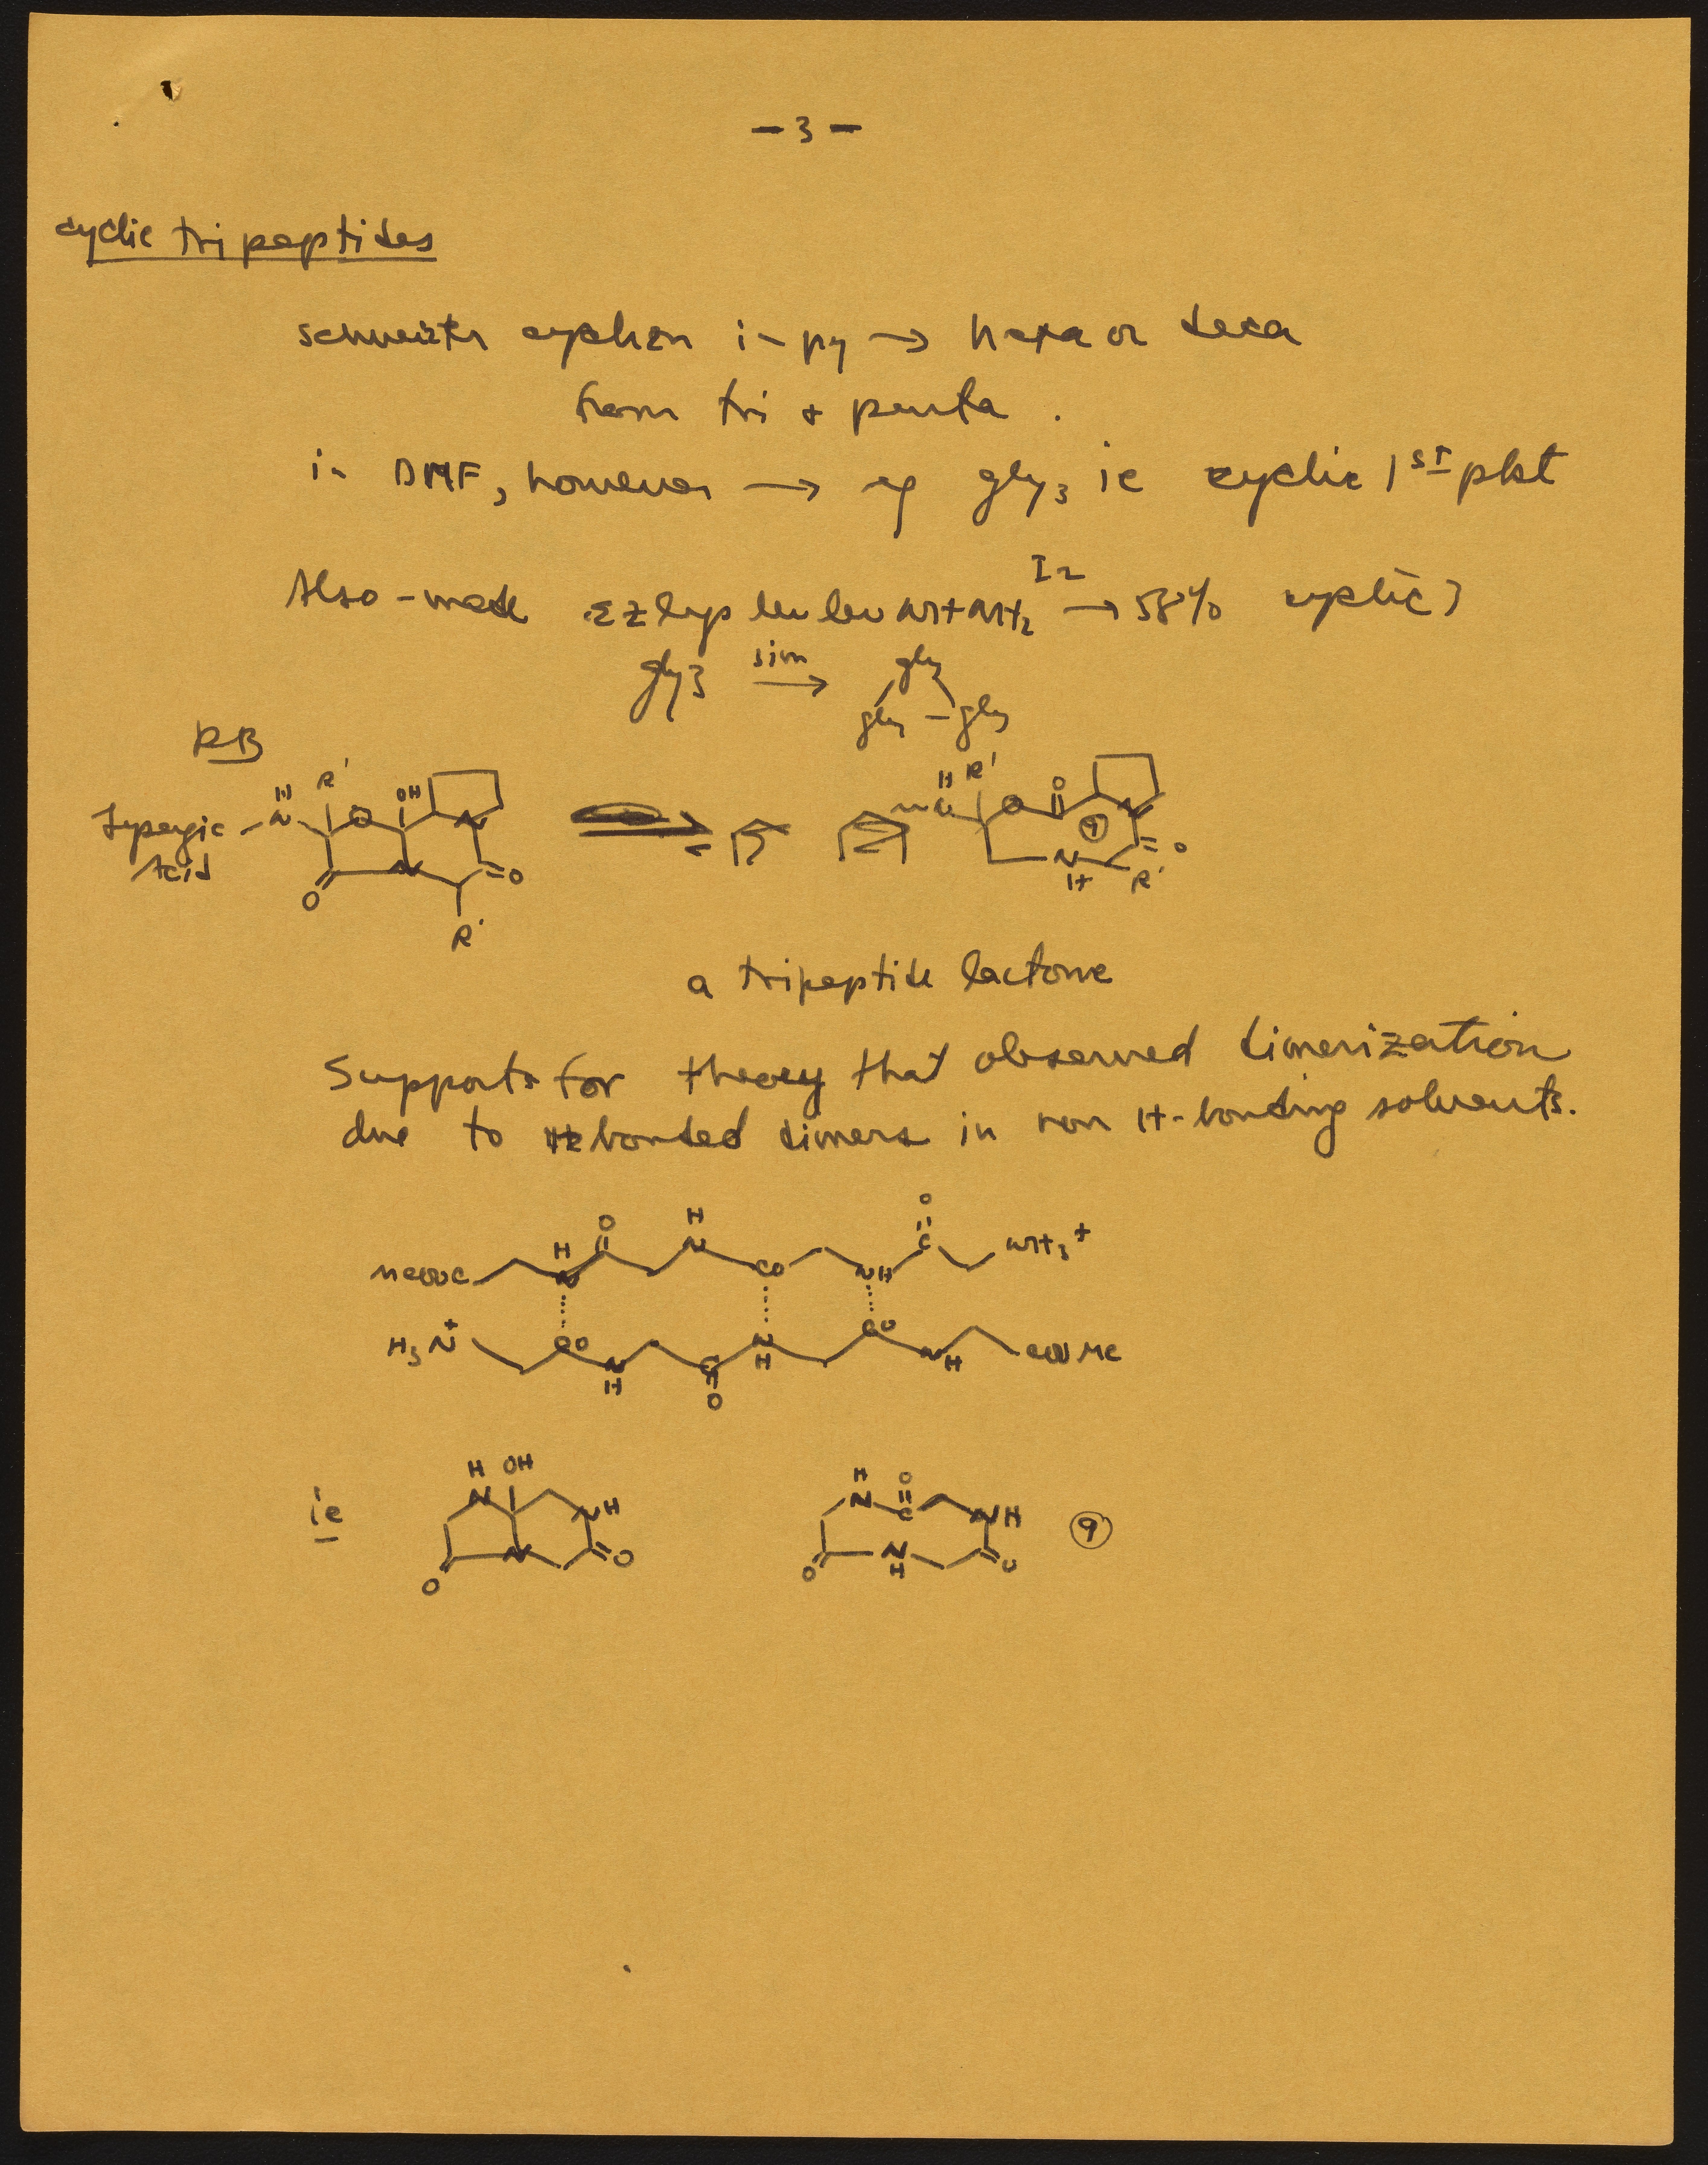 - 3 -
cyclic tripeptides
in py → hexa or deca
from tri + penta.
in DMF, however → eg gly3 ie cyclic 1st pkt
Also - made εZ lys leu leu NHNH2 I2 → 58% cyclic 3
gly3 sim → gly gly - gly
RB
Lysergic Acid - N H R' O OH N O N O R'
H N R' O O N 9 O N H R'
a tripeptide lactone
Supports for theory that observed dimerization
due to H bonded dimers in non H-bonding solvents.
MeOOC H N O H N CO NH O C NH3+
H3N+ CO N H C O N H CO N H COOMe
ie H N OH NH O N O
H N O C NH O N H O 9